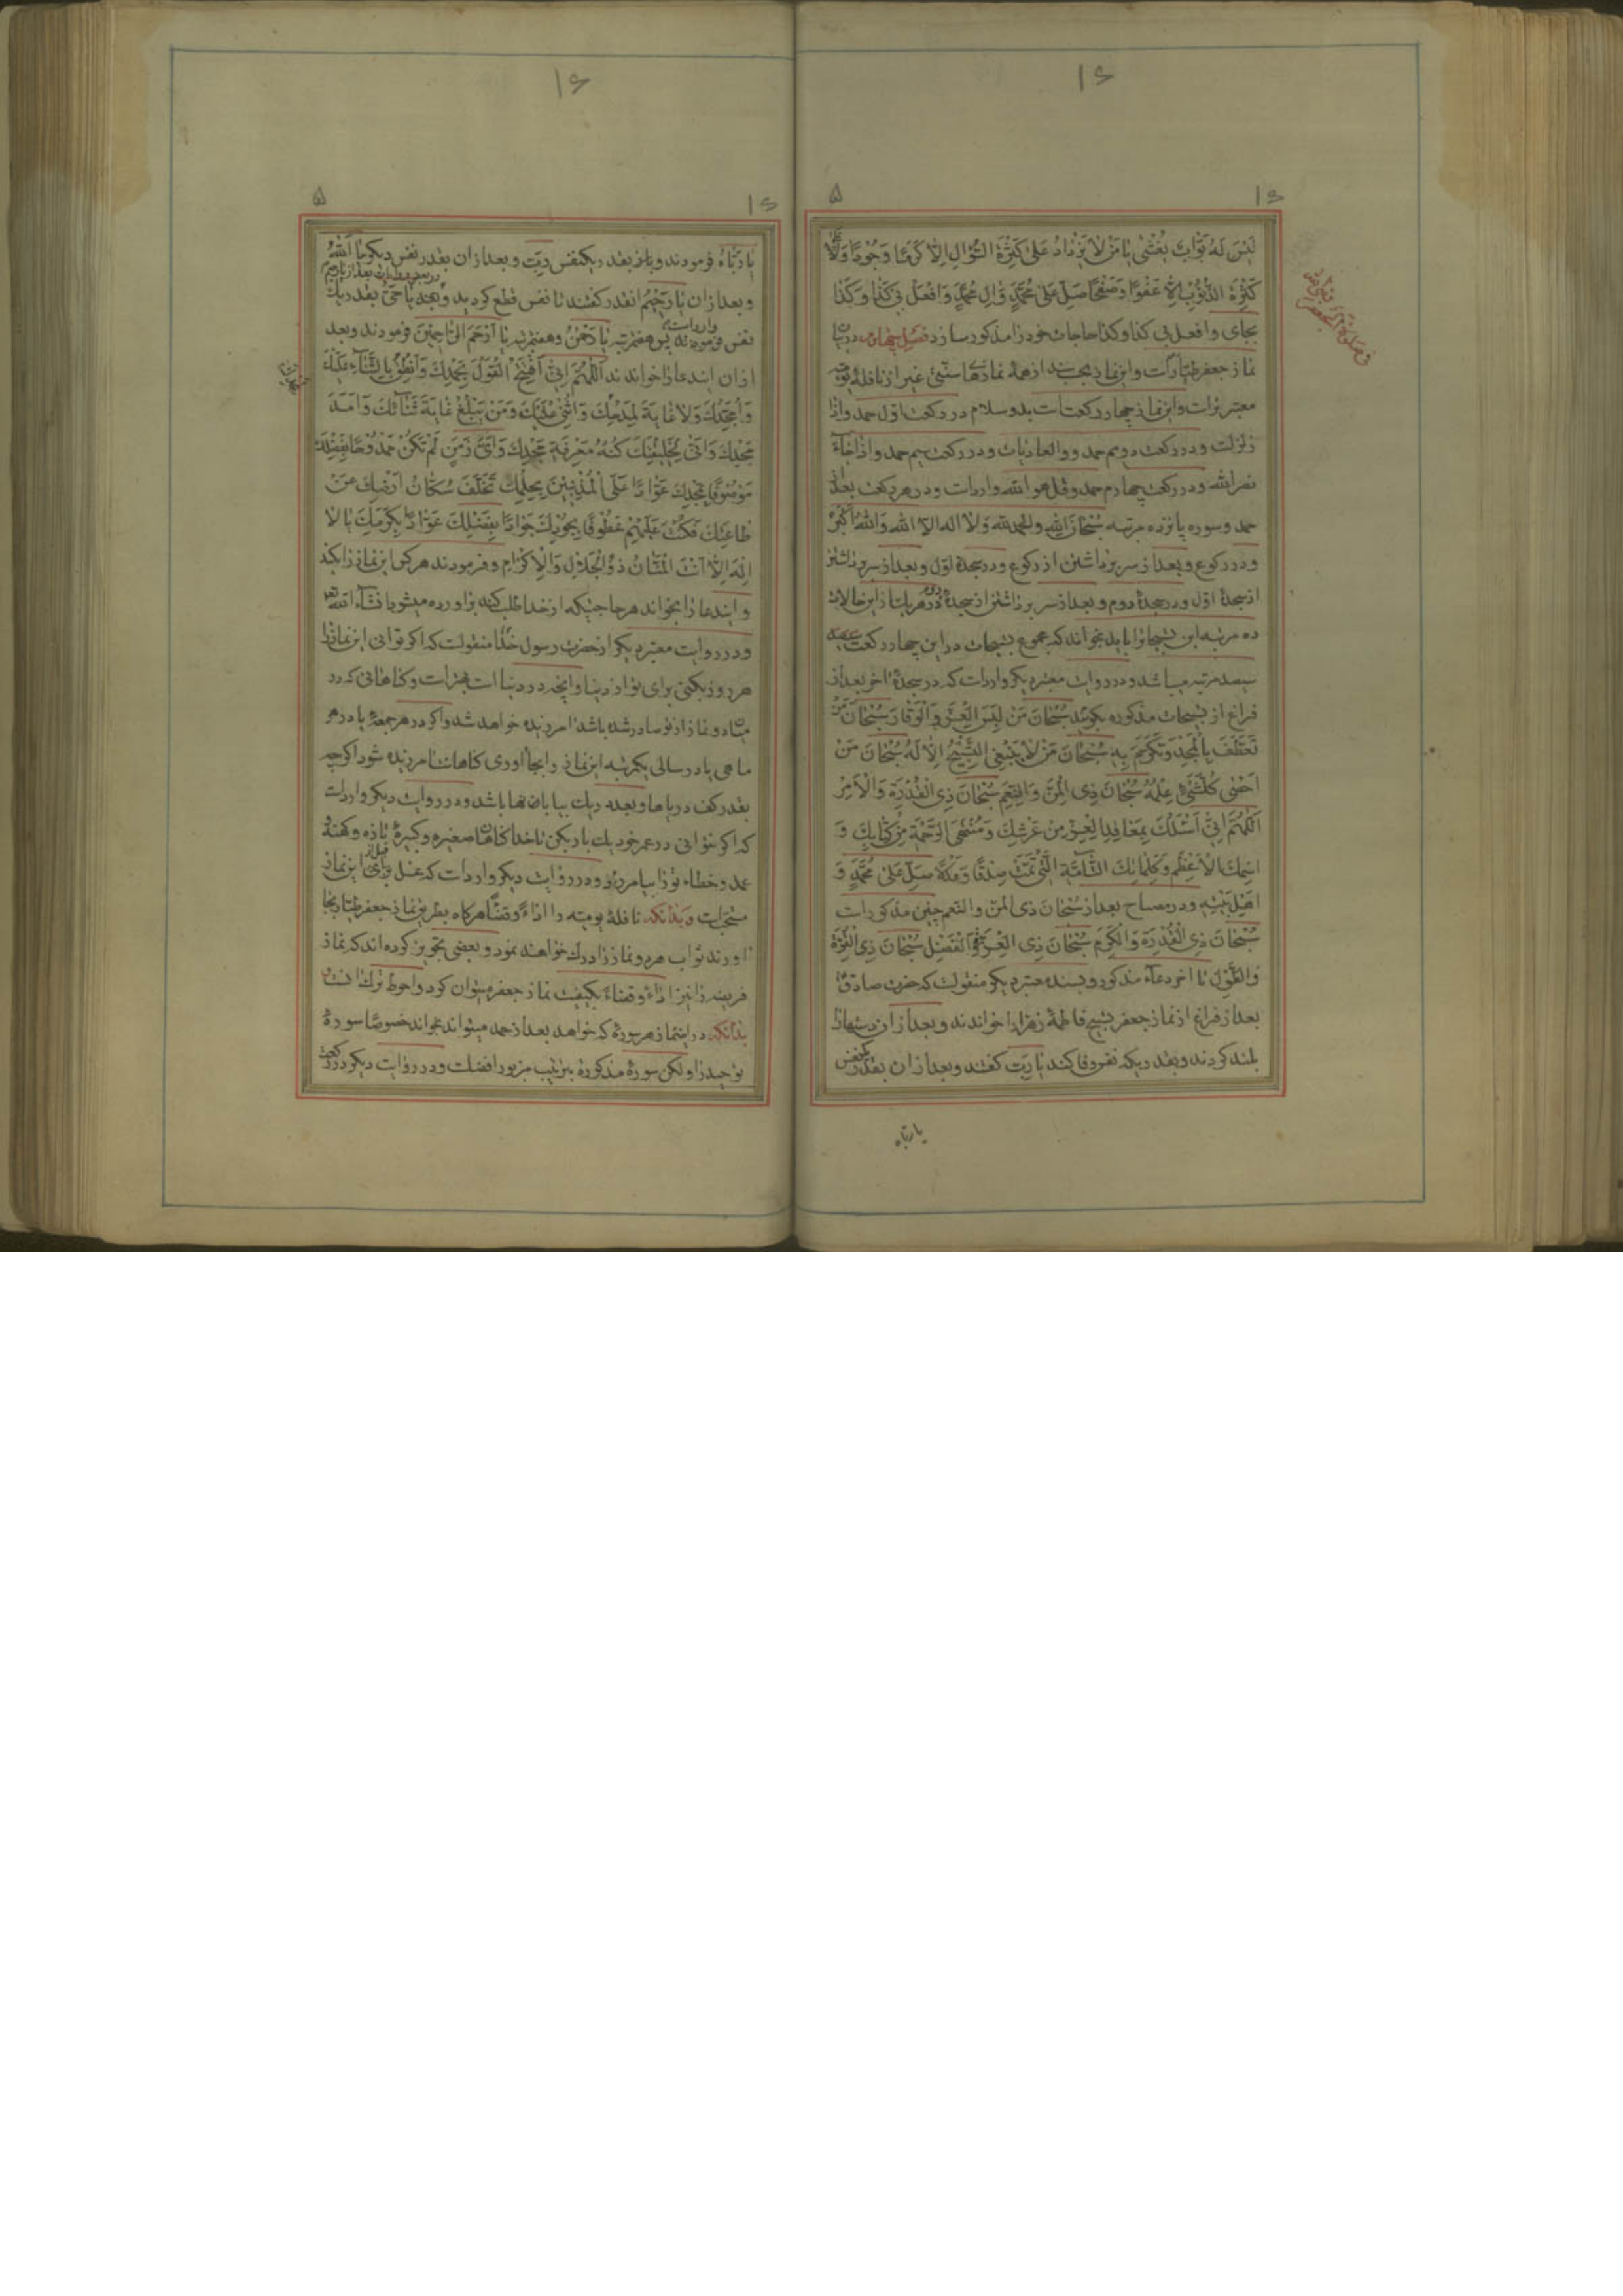 ١٤
١٤ ۵
لَيْسَ لَهُ بَوَّابٌ يُغْشٰى يا مَنْ لا يَزْدادُ عَلىٰ كَثْرَةِ السُّؤالِ اِلّا كَرَمًا وَجُودًا وَلا
كَثْرَةِ الذُّنُوبِ اِلّا عَفْوًا وَصَفْحًا صَلِّ عَلىٰ مُحَمَّدٍ وَالِ مُحَمَّدٍ وَافْعَلْ بى كَذا وَكَذا
بجاى وافعل بى كذا وكذا حاجات خود را مذكور سازد فصل چهارم در بيان
نماز جعفر طيار است و اين نماز از همهٔ نمازهاى سنّتى غير از نافلهٔ يوميه
معتبر تر است و اين نماز چهار ركعت است بدو سلام در ركعت اوّل حمد و اذا
زلزلت و در ركعت دويم حمد و والعاديات و در ركعت سيم حمد و اذا جآء
نصر الله و در ركعت چهارم حمد و قل هو الله وارد است و در هر ركعت بعد از
حمد و سوره پانزده مرتبه سُبْحانَ اللهِ والحمد لله وَلا اله الا الله وَاللهُ اَكْبَرُ
و در ركوع و بعد از سر برداشتن از ركوع و در سجدهٔ اوّل و بعد از سر برداشتن
از سجدهٔ اوّل و در سجدهٔ دوم و بعد از سر برداشتن از سجدهٔ دوم در هر يك از اين حالات
ده مرتبه اين تسبيحات را بايد بخواند كه مجموع تسبيحات در اين چهار ركعت
سيصد مرتبه ميباشد و در روايت معتبر ديگر وارد است كه در سجدهٔ اخر بعد از
فراغ از تسبيحات مذكوره بگويد سُبْحانَ مَنْ لَبِسَ الْعِزَّ وَالْوَقارَ سُبْحانَ مَنْ
تَعَطَّفَ بِالْمَجْدِ وَتَكَرَّمَ بِهِ سُبْحانَ مَنْ لا يَنْبَغِى التَّسْبِيحُ اِلّا لَهُ سُبْحانَ مَنْ
اَحْصٰى كُلَّ شَىْءٍ عِلْمُهُ سُبْحانَ ذِى الْمَنِّ وَالنِّعَمِ سُبْحانَ ذِى الْقُدْرَةِ وَالْاَمْرِ
اَللّٰهُمَّ اِنِّى اَسْئَلُكَ بِمَعاقِدِ الْعِزِّ مِنْ عَرْشِكَ وَمُنْتَهَى الرَّحْمَةِ مِنْ كِتابِكَ وَ
اسْمِكَ الْاَعْظَمِ وَكَلِماتِكَ التّامَّةِ الَّتى تَمَّتْ صِدْقًا وَعَدْلًا صَلِّ عَلىٰ مُحَمَّدٍ وَ
اَهْلِ بَيْتِهِ و در مصباح بعد از سُبْحانَ ذى المنّ والنعم چنين مذكور است
سُبْحانَ ذِى الْقُدْرَةِ وَالْكَرَمِ سُبْحانَ ذِى الْعِزَّةِ وَالْفَضْلِ سُبْحانَ ذِى الْقُوَّةِ
وَالطَّوْلِ تا اخر دعآء مذكور و بسند معتبر ديگر منقولست كه حضرت صادق
بعد از فراغ از نماز جعفر تسبيح فاطمهٔ زهرا را خواندند و بعد از ان دستها را
بلند كردند و بقدر يكه نفس وفا كند يا رَبِّ گفتند و بعد از ان بقدر يكنفس
يا ربّاه
١٤
١٤ ۵
يا رَبّاهُ فرمودند و باز بقدر يكنفس رَبِّ و بعد از ان بقدر نفس ديگر يا اَللهُ
و بعد از ان يا رَحيمُ انقدر گفتند تا نفس قطع گرديد و بعد يا حَىُّ بقدر يك
نفس فرمودند پس هفتمرتبه يا رَحْمٰنُ و هفتمرتبه يا اَرْحَمَ الرّاحِمينَ فرمودند و بعد
از ان ايندعا را خواندند اَللّٰهُمَّ اِنّى اَفْتَتِحُ الْقَوْلَ بِحَمْدِكَ وَاَنْطِقُ بِالثَّنآءِ عَلَيْكَ
وَاُمَجِّدُكَ وَلا غايَةَ لِمَدْحِكَ وَاُثْنى عَلَيْكَ وَمَنْ يَبْلُغُ غايَةَ ثَنآئِكَ وَاَمَدَ
مَجْدِكَ وَاَنّى لِخَليقَتِكَ كُنْهُ مَعْرِفَةِ مَجْدِكَ وَاَىَّ زَمَنٍ لَمْ تَكُنْ مَمْدُوحًا بِفَضْلِكَ
مَوْصُوفًا بِمَجْدِكَ عَوّادًا عَلَى الْمُذْنِبينَ بِحِلْمِكَ تَخَلَّفَ سُكّانُ اَرْضِكَ عَنْ
طاعَتِكَ فَكُنْتَ عَلَيْهِمْ عَطُوفًا بِجُودِكَ جَوادًا بِفَضْلِكَ عَوّادًا بِكَرَمِكَ يا لا
اِلٰهَ اِلّا اَنْتَ الْمَنّانُ ذُو الْجَلالِ وَالْاِكْرامِ و فرمودند هر كس اين نماز را بكند
و ايندعا را بخواند هر حاجتيكه از خدا طلب كند براورده ميشود انشآء الله
و در روايت معتبر ديگر از حضرت رسول خدا منقولست كه اگر توانى اين نماز را
هر روز بكنى براى تو از دنيا و انچه در دنيا است بهتر است و گناهانى كه در
ميان دو نماز از تو صادر شده باشد امرزيده خواهد شد و اگر در هر جمعهٔ يا در هر
ماهى يا در سالى يكمرتبه اين نماز را بجا اورى گناهانت امرزيده شود اگر چه
بقدر كف درياها و بعدد ريك بيابانها باشد و در روايت ديگر وارد است
كه اگر نتوانى در عمر خود يك بار بكن تا خدا گناهان صغيره و كبيرهٔ تازه و كهنه و
عمد و خطاء تو را بيامرزد و در روايت ديگر وارد است كه غسل براى اين نماز
مستحبّ است و بدانكه نافلهٔ يوميه را اداءً و قضاءً هر گاه بطريق نماز جعفر طيار بجا
اورند ثواب هر دو نماز را درك خواهند نمود و بعضى تجويز كرده اند كه نماز
فريضه را نيز اداءً و قضاءً بكيفيت نماز جعفر ميتوان كرد و احوط ترك انست
بدانكه در اينماز هر سورهٔ كه خواهد بعد از حمد ميتواند بخواند خصوصًا سورهٔ
توحيد را و لكن سورهٔ مذكوره بترتيب مزبور افضلست و در روايت ديگر در ركعت